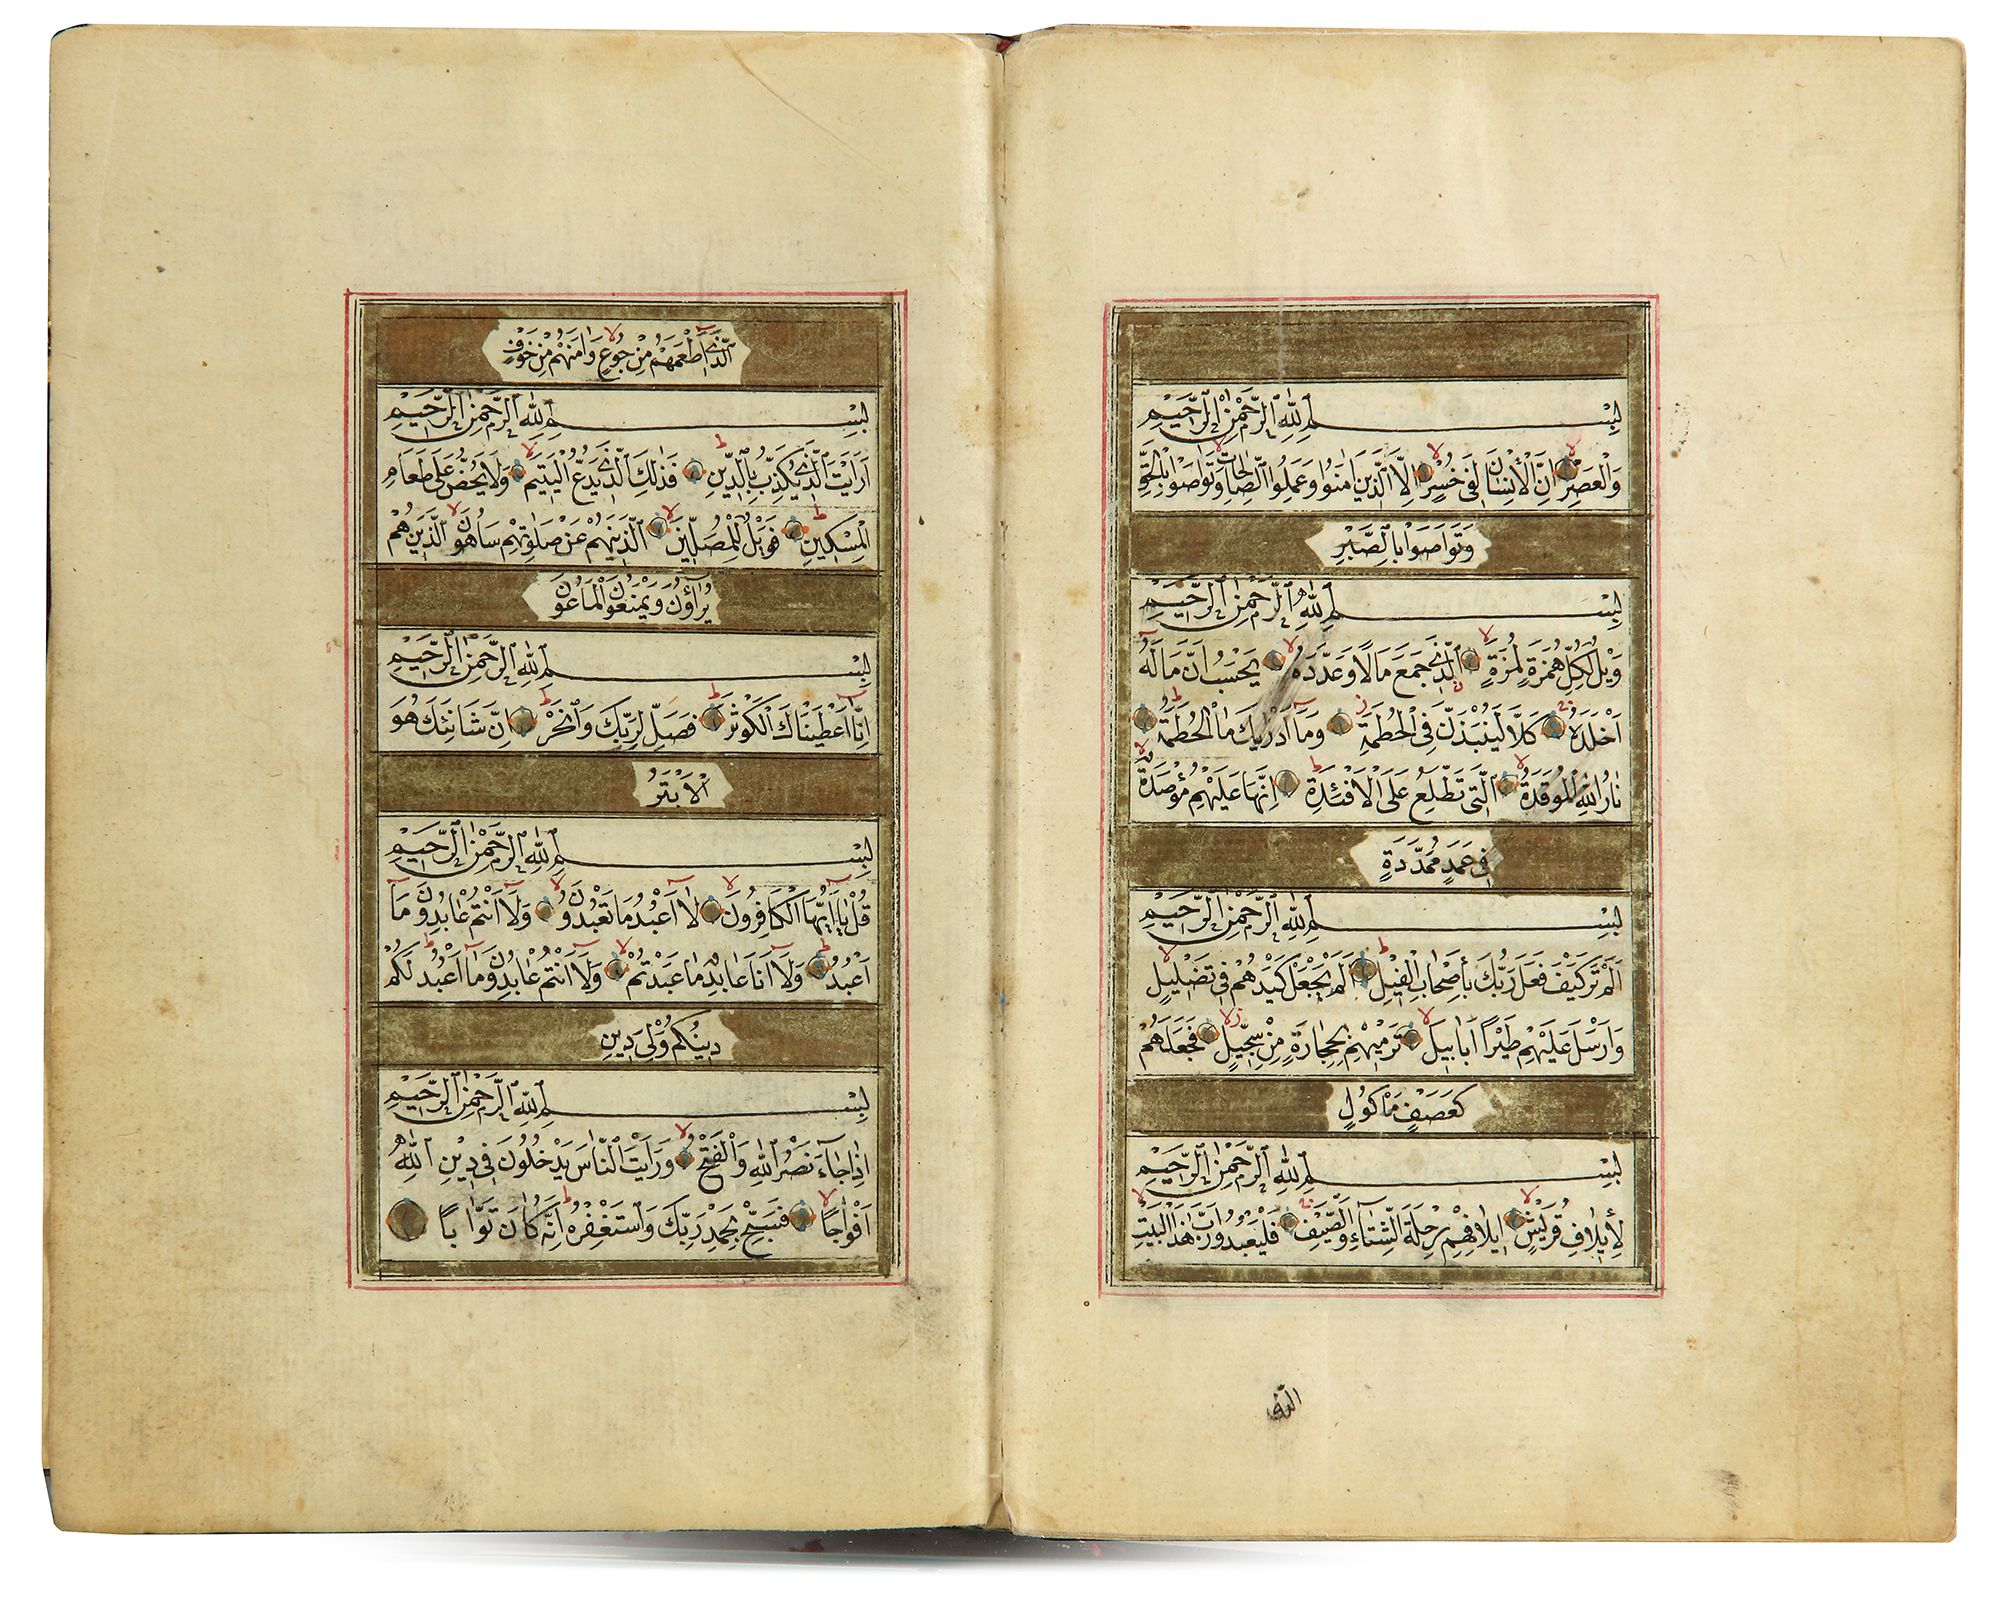 بِسْمِ اللّٰهِ الرَّحْمٰنِ الرَّحِيمِ
وَالْعَصْرِ اِنَّ الْاِنْسَانَ لَفِي خُسْرٍ اِلَّا الَّذِينَ اٰمَنُوا وَعَمِلُوا الصَّالِحَاتِ وَتَوَاصَوْا بِالْحَقِّ
وَتَوَاصَوْا بِالصَّبْرِ
بِسْمِ اللّٰهِ الرَّحْمٰنِ الرَّحِيمِ
وَيْلٌ لِكُلِّ هُمَزَةٍ لُمَزَةٍ الَّذِي جَمَعَ مَالًا وَعَدَّدَهُ يَحْسَبُ اَنَّ مَالَهُ
اَخْلَدَهُ كَلَّا لَيُنْبَذَنَّ فِي الْحُطَمَةِ وَمَا اَدْرٰيكَ مَا الْحُطَمَةُ
نَارُ اللّٰهِ الْمُوقَدَةُ الَّتِي تَطَّلِعُ عَلَى الْاَفْئِدَةِ اِنَّهَا عَلَيْهِمْ مُؤْصَدَةٌ
فِي عَمَدٍ مُمَدَّدَةٍ
بِسْمِ اللّٰهِ الرَّحْمٰنِ الرَّحِيمِ
اَلَمْ تَرَ كَيْفَ فَعَلَ رَبُّكَ بِاَصْحَابِ الْفِيلِ اَلَمْ يَجْعَلْ كَيْدَهُمْ فِي تَضْلِيلٍ
وَاَرْسَلَ عَلَيْهِمْ طَيْرًا اَبَابِيلَ تَرْمِيهِمْ بِحِجَارَةٍ مِنْ سِجِّيلٍ فَجَعَلَهُمْ
كَعَصْفٍ مَأْكُولٍ
بِسْمِ اللّٰهِ الرَّحْمٰنِ الرَّحِيمِ
لِاِيلَافِ قُرَيْشٍ اِيلَافِهِمْ رِحْلَةَ الشِّتَاءِ وَالصَّيْفِ فَلْيَعْبُدُوا رَبَّ هٰذَا الْبَيْتِ
الَّذِي اَطْعَمَهُمْ مِنْ جُوعٍ وَاٰمَنَهُمْ مِنْ خَوْفٍ
بِسْمِ اللّٰهِ الرَّحْمٰنِ الرَّحِيمِ
اَرَاَيْتَ الَّذِي يُكَذِّبُ بِالدِّينِ فَذٰلِكَ الَّذِي يَدُعُّ الْيَتِيمَ وَلَا يَحُضُّ عَلَى طَعَامِ
الْمِسْكِينِ فَوَيْلٌ لِلْمُصَلِّينَ الَّذِينَ هُمْ عَنْ صَلٰوتِهِمْ سَاهُونَ الَّذِينَ هُمْ
يُرَاؤُنَ وَيَمْنَعُونَ الْمَاعُونَ
بِسْمِ اللّٰهِ الرَّحْمٰنِ الرَّحِيمِ
اِنَّا اَعْطَيْنَاكَ الْكَوْثَرَ فَصَلِّ لِرَبِّكَ وَانْحَرْ اِنَّ شَانِئَكَ هُوَ
الْاَبْتَرُ
بِسْمِ اللّٰهِ الرَّحْمٰنِ الرَّحِيمِ
قُلْ يَا اَيُّهَا الْكَافِرُونَ لَا اَعْبُدُ مَا تَعْبُدُونَ وَلَا اَنْتُمْ عَابِدُونَ مَا
اَعْبُدُ وَلَا اَنَا عَابِدٌ مَا عَبَدْتُمْ وَلَا اَنْتُمْ عَابِدُونَ مَا اَعْبُدُ لَكُمْ
دِينُكُمْ وَلِيَ دِينِ
بِسْمِ اللّٰهِ الرَّحْمٰنِ الرَّحِيمِ
اِذَا جَاءَ نَصْرُ اللّٰهِ وَالْفَتْحُ وَرَاَيْتَ النَّاسَ يَدْخُلُونَ فِي دِينِ اللّٰهِ
اَفْوَاجًا فَسَبِّحْ بِحَمْدِ رَبِّكَ وَاسْتَغْفِرْهُ اِنَّهُ كَانَ تَوَّابًا